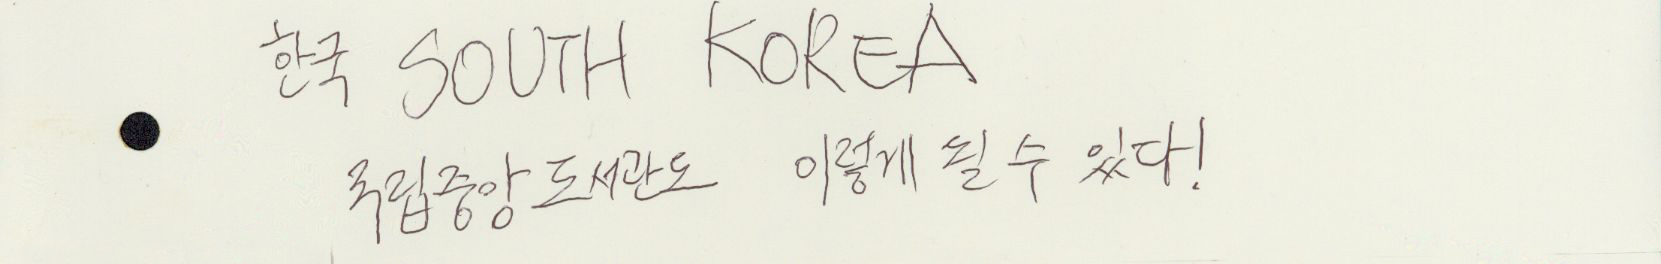 한국 SOUTH KOREA
국립중앙도서관도 이렇게 될 수 있다!